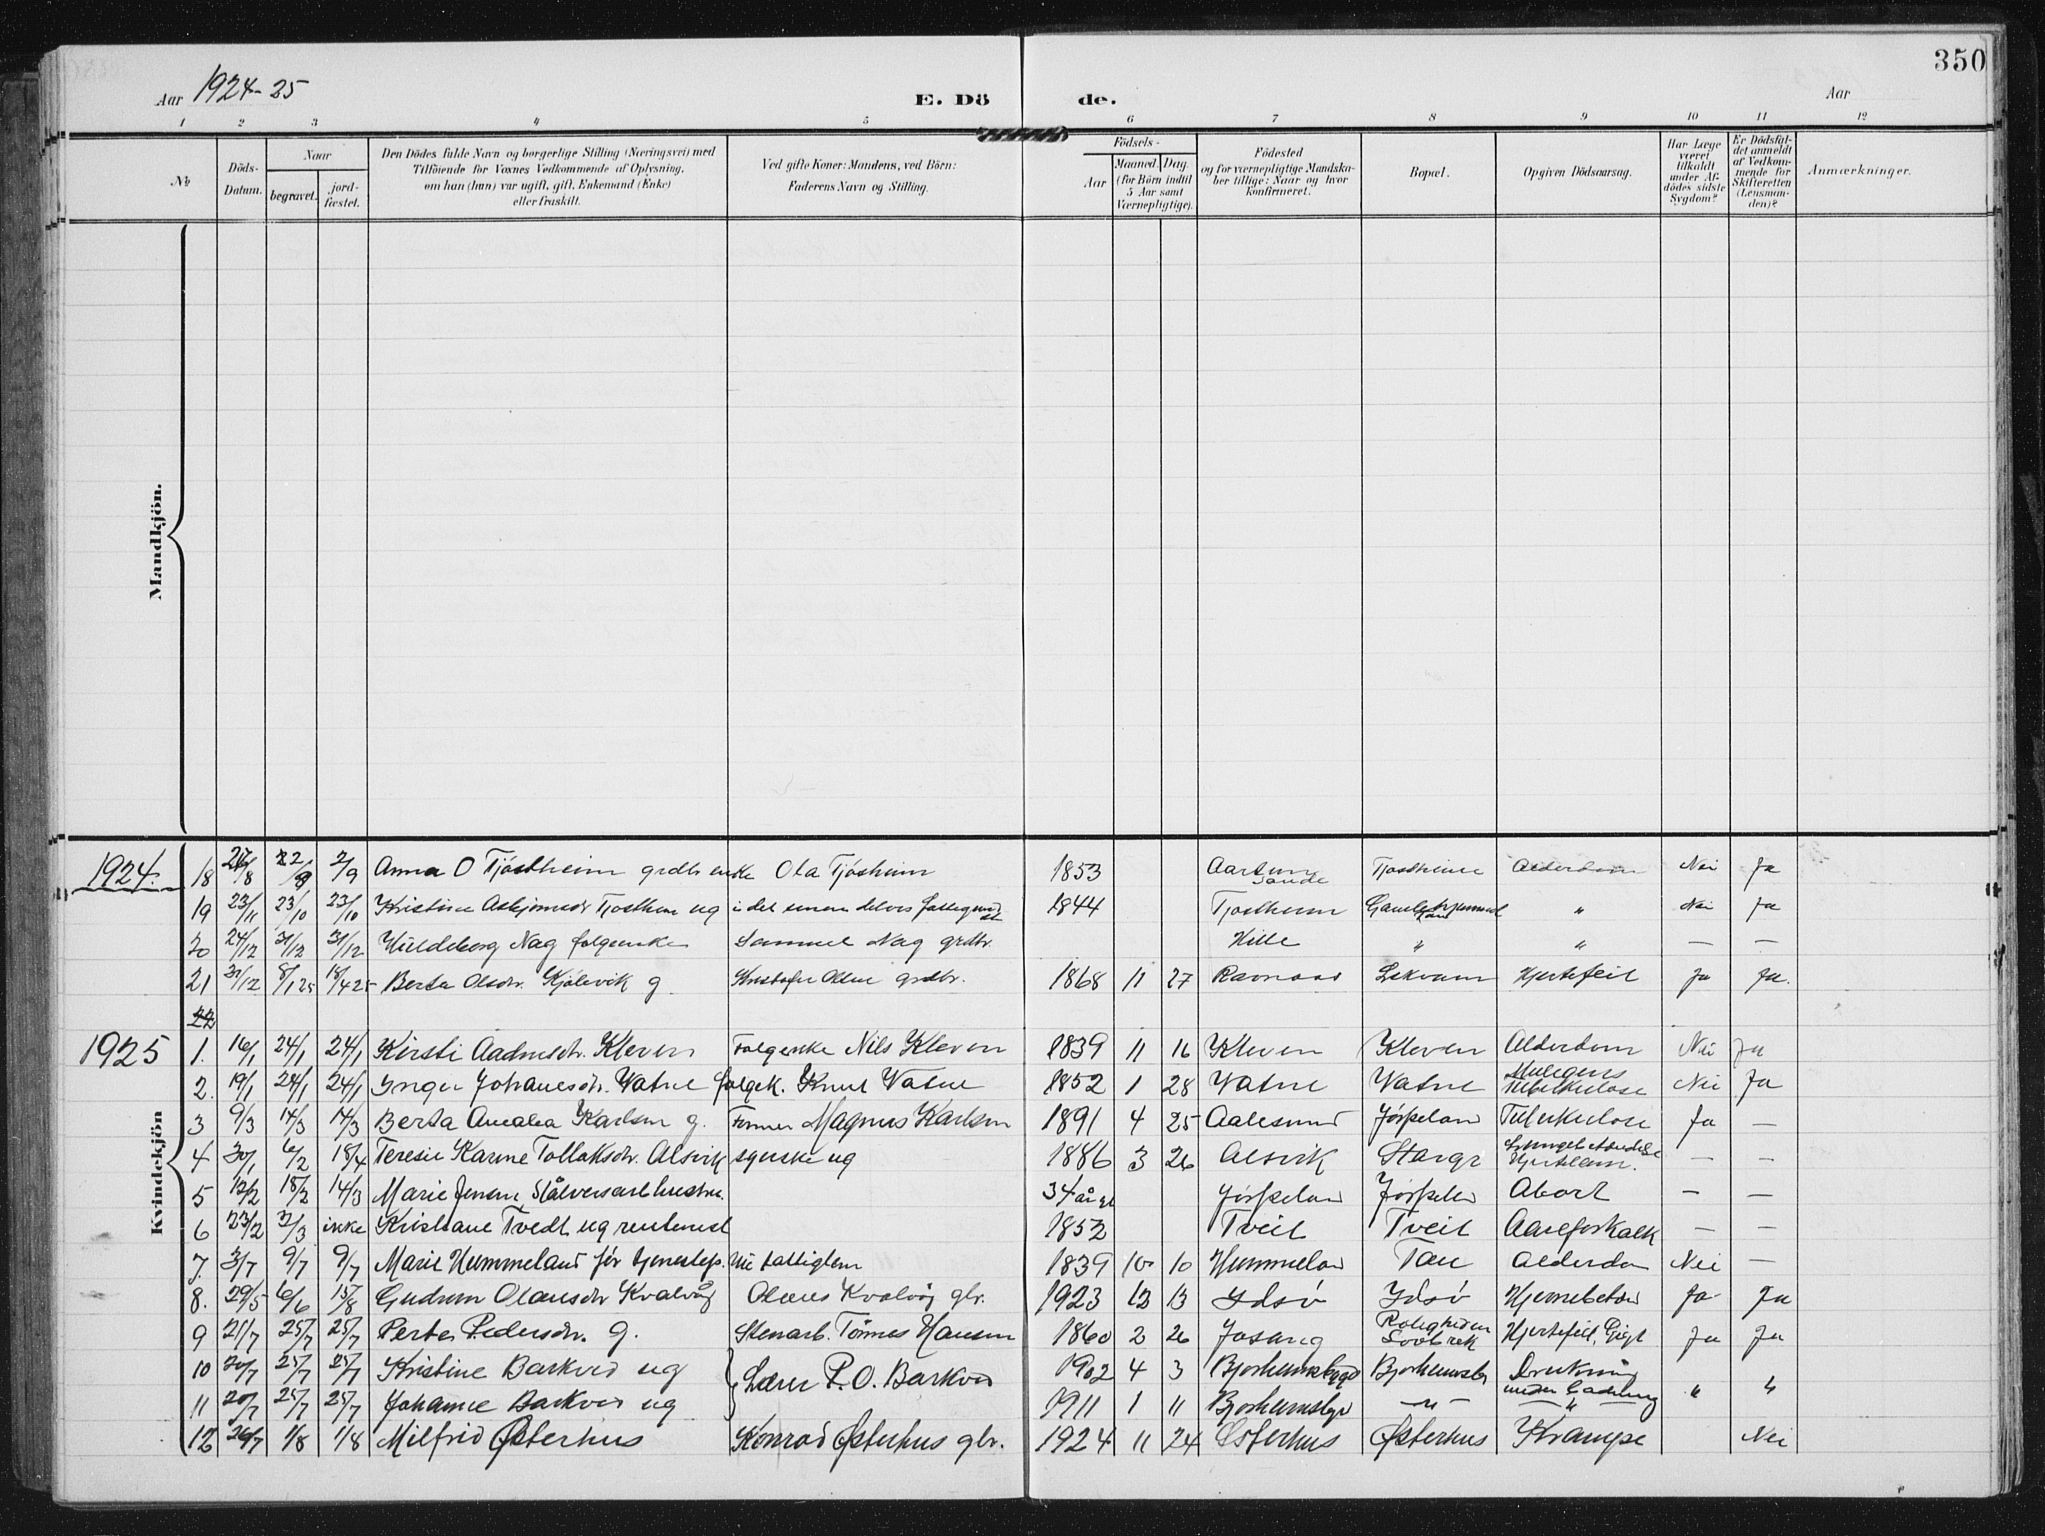 350
Aar 1924-25
E. Dö de.
Aar
1 2 3 4 5 6 7 8 9 10 11 12
No
Döds-Datum.
Naar
begravet.
jord-fæstet.
Den Dödes fulde Navn og borgerlige Stilling (Næringsvei) med
Tilföiende for Voxnes Vedkommende af Oplysning,
om han (hun) var ugift, gift, Enkemand (Enke)
eller fraskilt.
Ved gifte Koner: Mandens, ved Börn:
Faderens Navn og Stilling.
Födsels-
Aar
Maaned. Dag.
(for Börn indtil
5 Aar samt
Værnepligtige).
Födested
og for værnepligtige Mandska-
ber tillige: Naar og hvor
konfirmeret.
Bopæl.
Opgiven Dödsaarsag.
Har Læge
været
tilkaldt
under Af-
dödes sidste
Sygdom?
Er Dödsfal-
det anmeldt
af Vedkom-
mende for
Skifteretten
(Lensman-
den)?
Anmærkninger.
Mandkjön.
Kvindekjön
1924. 18 2/9 Anna O Tjöstheim grdbr enke Ola Tjösheim 1853 Tjostheim Alderdom Nei Ja
19 23/11 23/10 23/10 Kristine 1844 Tjostheim " Nei Ja
20 24/12 31/12 31/12 Nag folgeenke Samuel Nag grdbr. Hille " " — —
21 31/12 8/1 25 18/4 25 Berta Olsdr. Kjölevik g. grdbr. 1868 11 27 Ravnaas Lekvam Hjertefeil Ja Ja.
22
1925 1. 16/1 24/1 24/1 Kirsti Kleven Folgeenke Nils Kleven 1839 11 16 Kleven Kleven Alderdom Nei Ja
2. 19/1 24/1 24/1 Inger Johannesdr. Vatne folgek. Knut Vatne 1852 1 28 Vatne Vatne Tuberkulose Nei Ja
3 9/3 14/3 14/3 Berta Amalia Karlsen g. Former Magnus Karlsen 1891 4 25 Aalesund Jörpeland Tuberkulose Ja —
4 30/1 6/2 18/4 Teresie Karine Tollaksdr. Alsvik syerske ug 1886 3 26 Alsvik Stavgr — —
5 12/2 18/2 14/3 Marie Jensen 34 år gl Jörpeland Jörpeld Abort — —
6 23/2 3/3 ikke Kristiane Tvedt ug rentenist 1852 Tveit Tveit Aareforkalk — —
7. 3/7 9/7 9/7 Marie Hummeland för 1839 10 10 Hummeland Tau Alderdom Nei —
8. 29/5 6/6 15/8 Gudrun Olausdr Kvalvåg Olaus Kvalvåg gbr. 1923 12 13 Idsö Idsö Hjernebetæn Ja Ja
9 21/7 25/7 25/7 Perte Pedersdr. g. Stenarb. Tönnes Hansen 1860 2 26 Jösang Roligheden Hjertefeil, Gigt Ja Ja
10 20/7 25/7 25/7 Kristine Barkved ug Lærer P. O. Barkved 1902 4 3 Bjorheimsbygd Bjorheimsby Drukning
11 20/7 25/7 25/7 Johanne Barkved ug 1911 1 11 Bjorheimsbyg — " — under badning — " — " "
12 26/7 1/8 1/8 Milfrid Østerhus Konrad Østerhus gbr. 1924 11 24 Østerhus Østerhus Krampe Nei